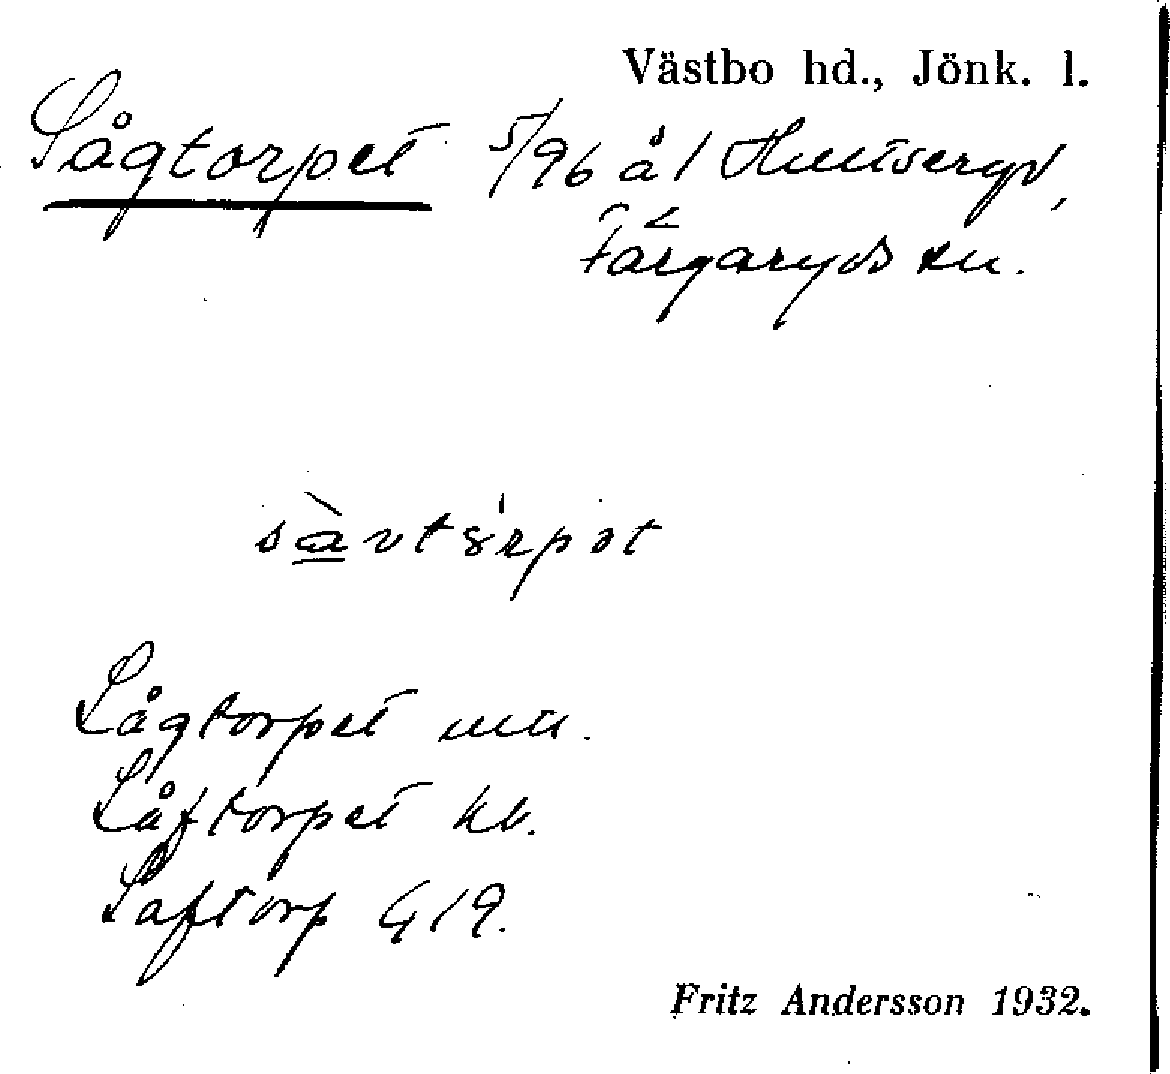 Västbo hd., Jönk. l.
Sågtorpet 5/96 å 1 Hultseryd,
Färgaryds sn.
Sågtorpet
Såftorpet kb.
Saftorp G 19.
Fritz Andersson 1932.